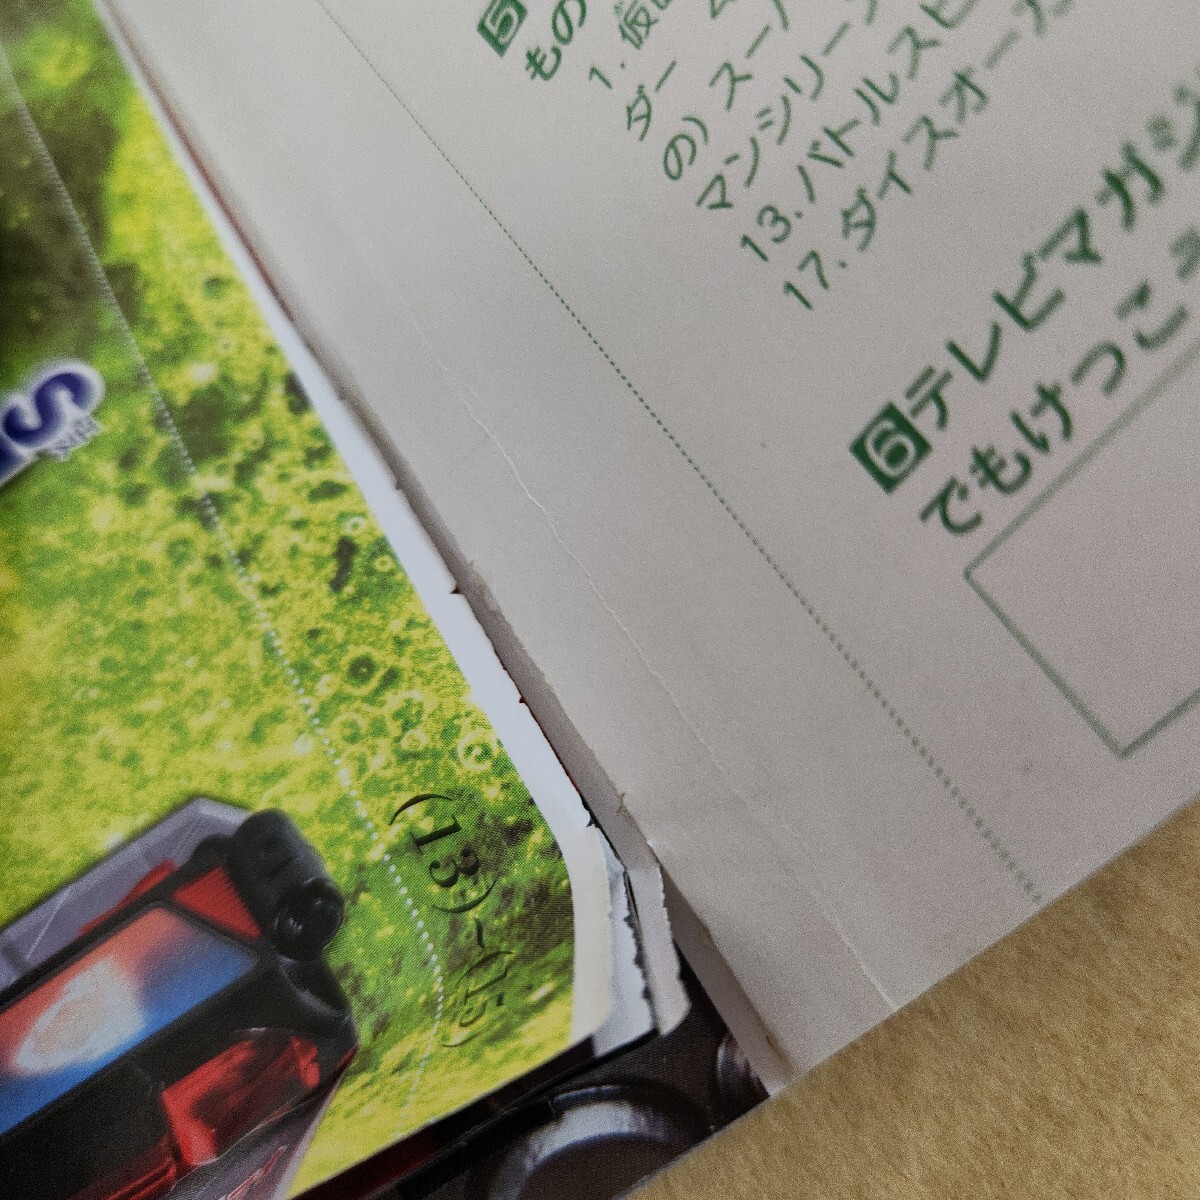 5
もの
1. 仮
ダー ム
の) スー
マンシリーズ
13. バトルスピ
17. ダイスオー
6 テレビマガジ
でもけっこう
(13)~(15)
S